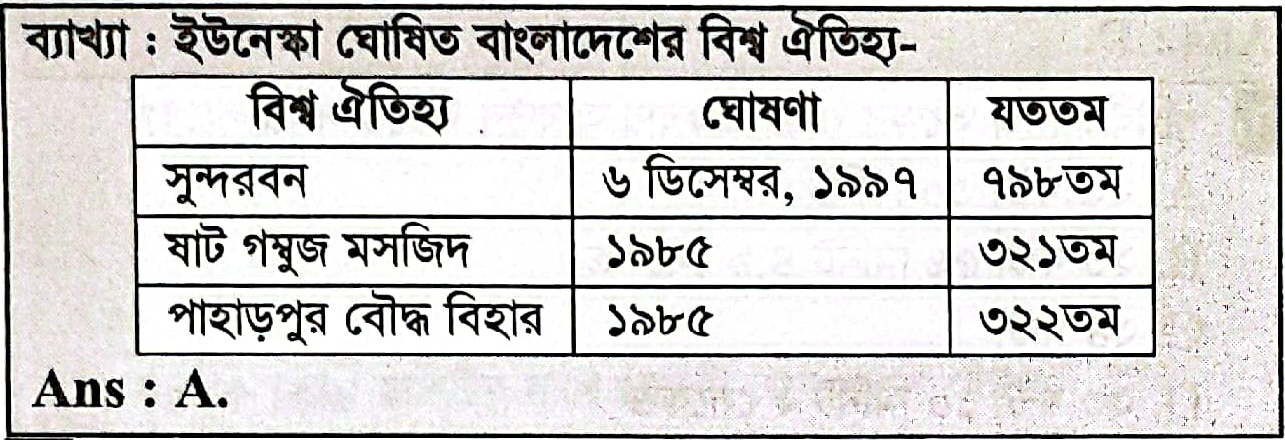 ব্যাখ্যা : ইউনেস্কা ঘোষিত বাংলাদেশের বিশ্ব ঐতিহ্য-
বিশ্ব ঐতিহ্য ঘোষণা যততম
সুন্দরবন ৬ ডিসেম্বর, ১৯৯৭ ৭৯৮তম
ষাট গম্বুজ মসজিদ ১৯৮৫ ৩২১তম
পাহাড়পুর বৌদ্ধ বিহার ১৯৮৫ ৩২২তম
Ans : A.